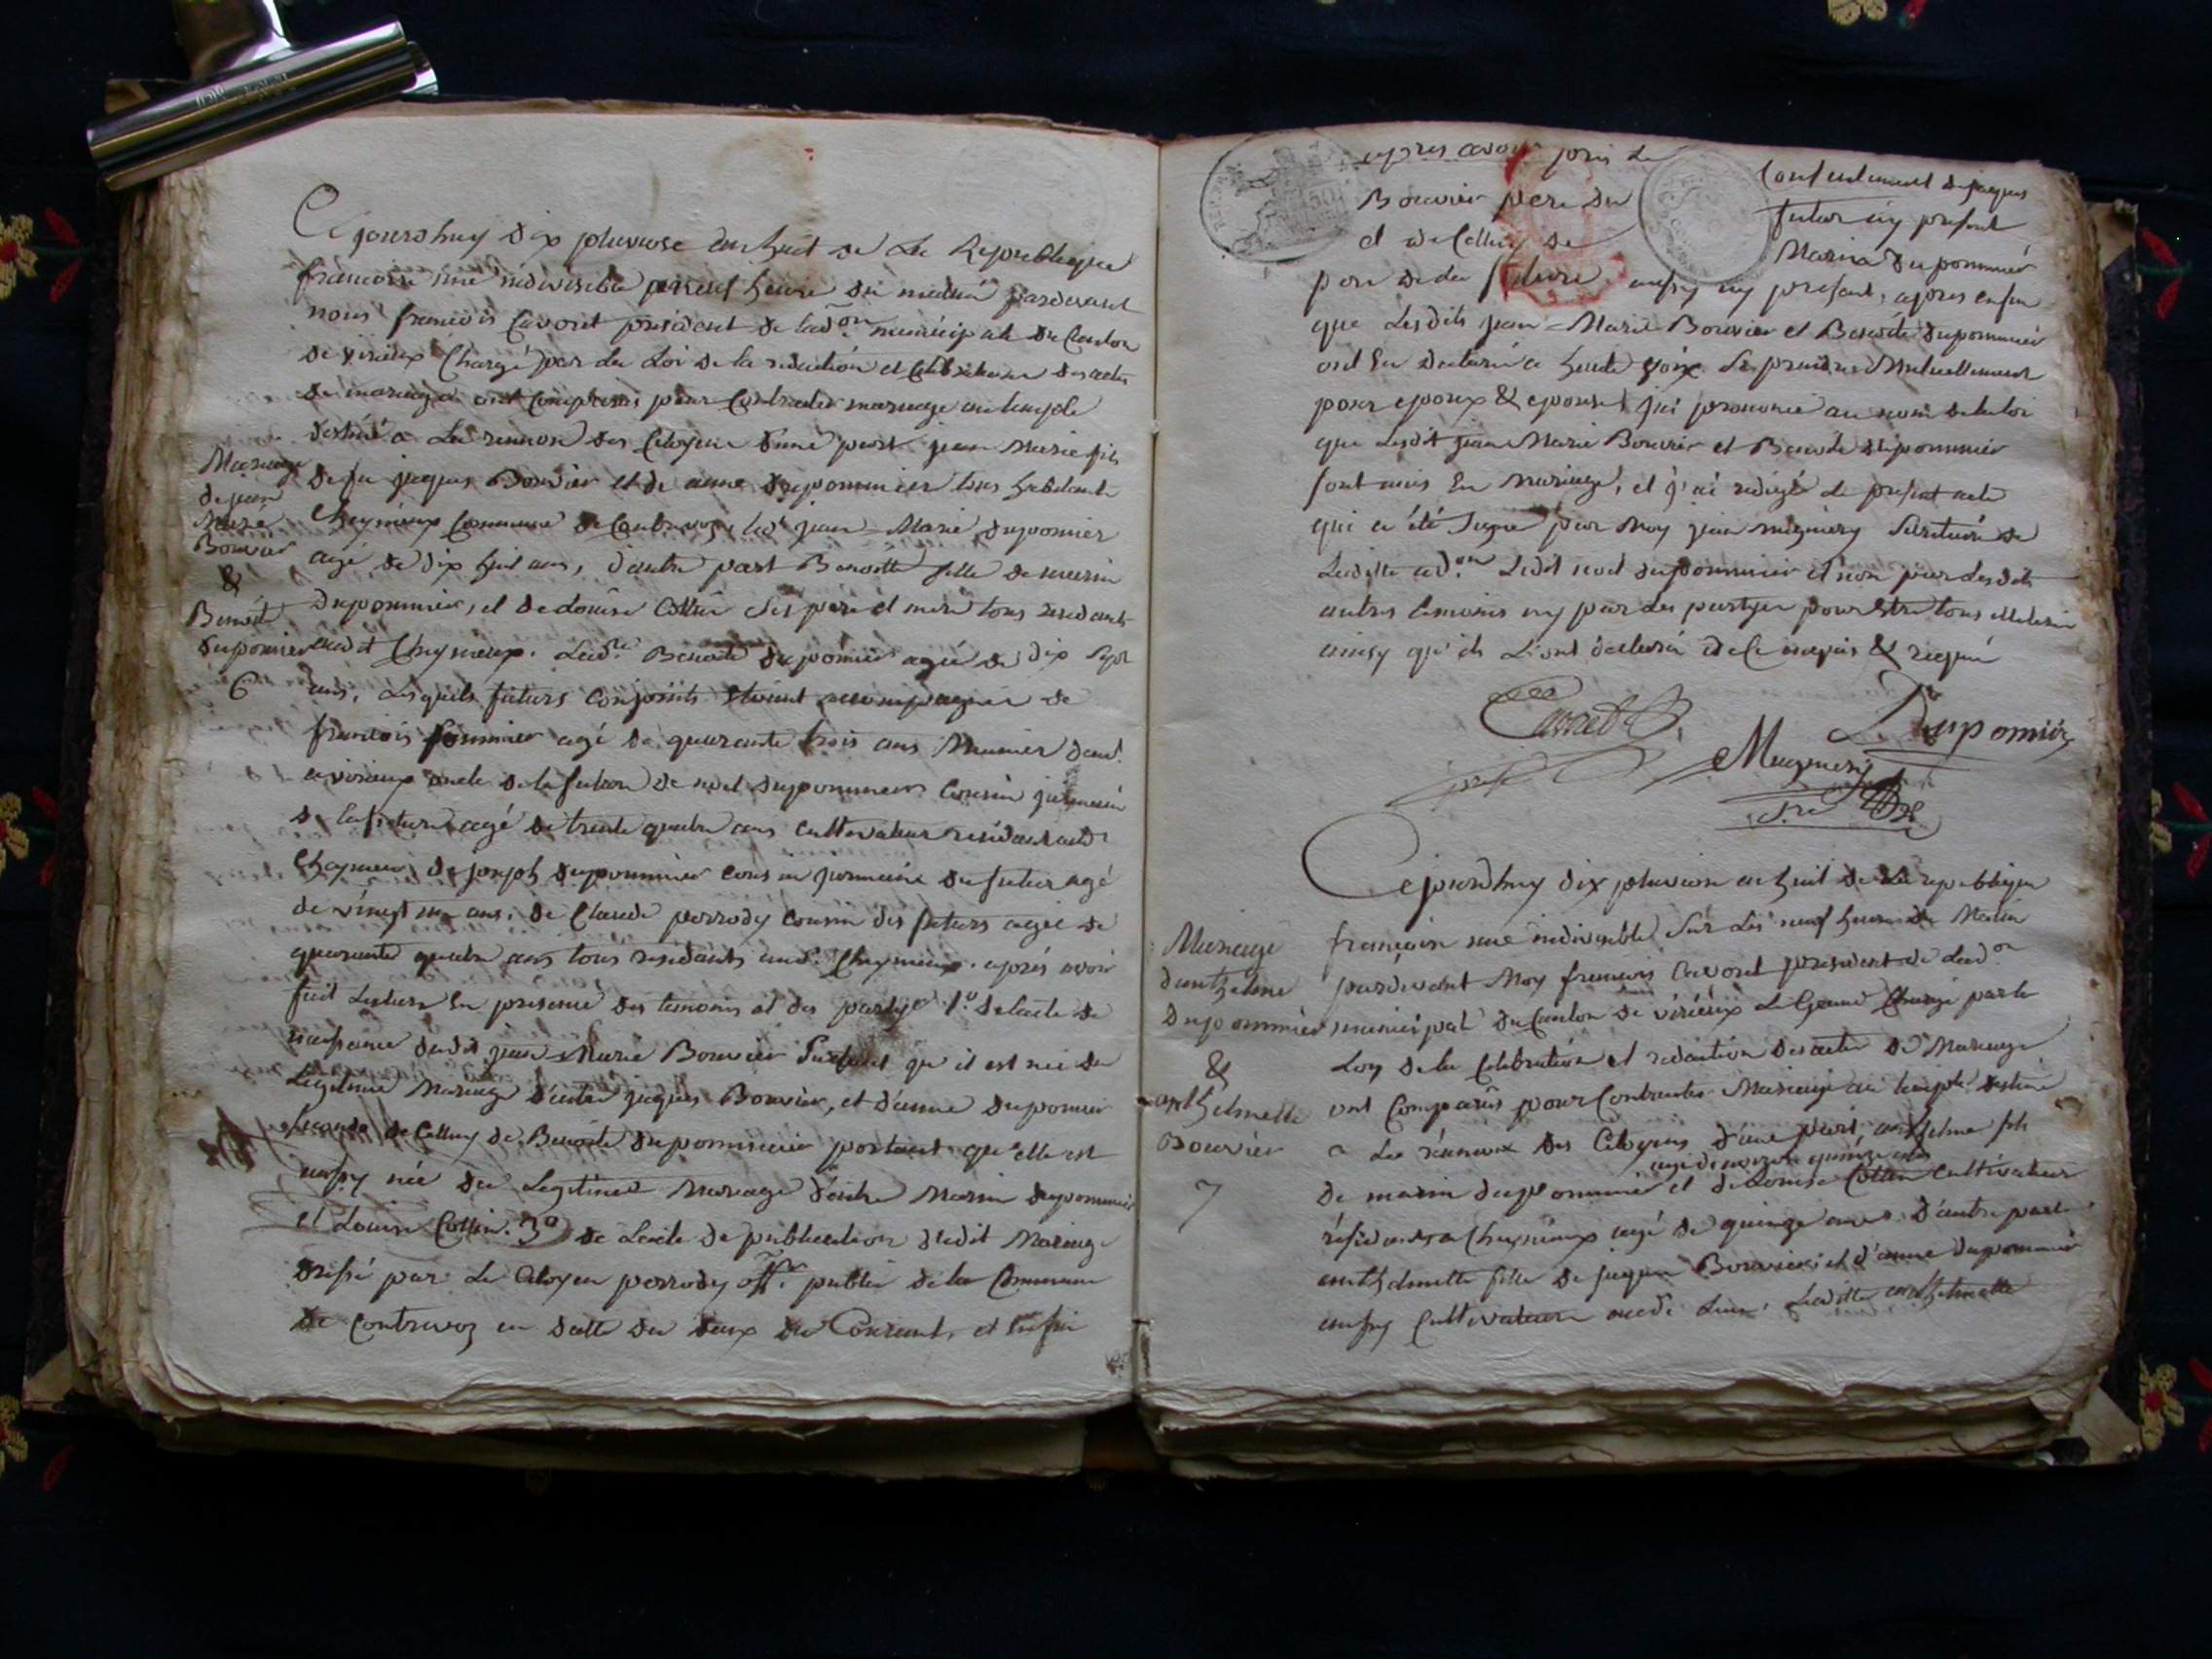 Cejourdhuy dix pluviose an huit de La Republique
francoise une indivisible neuf heure du matin pardevant
nous francois Cavoret president de Lad.on municipale du Canton
de virieux Chargé par La Loi de la redaction et Celebration des actes
de mariage ont Comparus pour Contracter mariage au temple
destiné a La reunion des Citoyens d'une part jean Marie fils
Mariage
de jean
Marie
Bouvier
&
Benoite
Duponnier
6
de jaques Bouvier et de anne duponnier tous habitants
Cheynieux Commune de Contrevoz, led jean Marie duponnier
agé de dix huit ans, d'autre part Benoitte fille de marin
duponnier, et de Louise Collin ses pere et mere tous residents
aud.t Cheynieux. Lad.te Benoite duponnier agée de dix sept
ans, Lesquels futurs Conjoints etoient accompagnés de
francois agé de quarante trois ans Munier dem.t
a virieux oncle de la future de noel duponnier Cousin germain
de la future agé de trente quatre ans Cultivateur residant aud.t
Cheynieux, de joseph duponnier Cousin germain du futur agé
de vingt un ans, de Claude perrody Cousin des futurs agé de
quarante quatre ans tous residants aud.t Cheynieux. après avoir
fait Lecture En presence des temoins et des partyes 1.o de Lacte de
naissance dudit jean Marie Bouvier portant qu'il est née du
Legitime Mariage d'entre jaques Bouvier, et d'anne duponnier
de Celluy de Benoite duponnier portant qu'elle est
aussy née du Legitime Mariage d'entre Marin duponnier
et Louise Collin. 3.o de Lacte de publication dudit Mariage
dressé par Le Citoyen perrody off.er public de la Commune
de Contrevoz en datte du deux du Courant, et Enfin
apres avoir pris Le Consentement de jaques
Bouvier pere du futur icy present
et de Celluy de Marin duponnier
pere de La future aussy icy present, apres enfin
que Lesdits jean-Marie Bouvier et Benoite duponnier
ont Eu declaré a haute voix Se prendre Mutuellement
pour epoux & epouse, j'ai prononcé au nom de la loi
que Lesdit jean Marie Bouvier et Benoite duponnier
sont unis En mariage, et j'ai redigé Le present acte
qui a été Signé par moy jean mugniery Secretaire de
Laditte ad.on Ledit noel duponnier et non par Lesdits
autres temoins ny par Les partyes pour Etre tous illeteré
ainsy qu'ils L'ont declaré de Ce enquis & requis
Cavoret
Duponnier
Mugniery
Mariage
danthelme
Duponnier
&
anthelmette
Bouvier
7
Cejourdhuy dix pluviose an huit de La republique
francoise une indivisible Sur Les neuf heures du Matin
pardevant Moy francois Cavoret president de Lad.on
municipal du Canton de viriéux Le Grand Chargé par la
Loy de la Celebration et redaction des actes de Mariage
ont Comparus pour Contracter Mariage au temple destiné
a La réunion des Citoyens d'une part, anthelme fils
de marin duponnier et de Louise Collin Cultivateur
résidants a Cheynieux agé de quinze ans. d'autre part
anthelmette fille de jaques Bouvier et d'anne duponnier
aussy Cultivateurs Laditte anthelmette